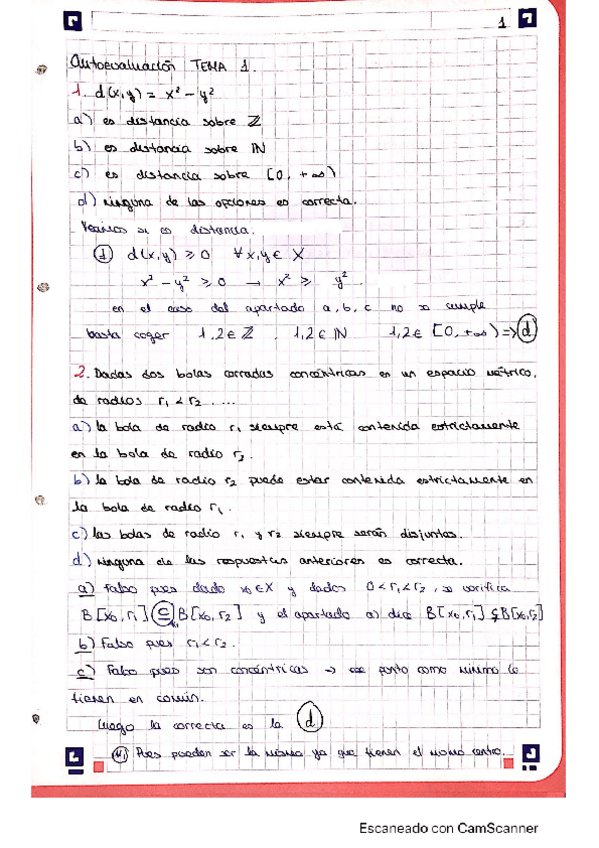 1
Autoevaluación TEMA 1.
1. d(x,y) = x² - y²
a) es distancia sobre ℤ
b) es distancia sobre ℕ
c) es distancia sobre [0, +∞)
d) ninguna de las opciones es correcta.
Veamos si es distancia.
① d(x,y) ≥ 0 ∀x,y ∈ X
x² - y² ≥ 0 → x² ≥ y²
en el caso del apartado a, b, c no se cumple
basta coger 1,2 ∈ ℤ, 1,2 ∈ ℕ 1,2 ∈ [0, +∞) => ⓓ
2. Dadas dos bolas cerradas concéntricas en un espacio métrico,
de radios r₁ < r₂ ....
a) la bola de radio r₁ siempre está contenida estrictamente
en la bola de radio r₂.
b) la bola de radio r₂ puede estar contenida estrictamente en
la bola de radio r₁.
c) las bolas de radio r₁ y r₂ siempre serán disjuntas.
d) ninguna de las respuestas anteriores es correcta.
a) Falso pues dado x₀ ∈ X y dados 0 < r₁ < r₂, se verifica
B[x₀, r₁] ⊆ B[x₀, r₂] y el apartado a) dice B[x₀, r₁] ⊊ B[x₀, r₂]
b) Falso pues r₁ < r₂.
c) Falso pues son concéntricas → ese punto como mínimo lo
tienen en común.
Luego la correcta es la ⓓ
(*₁) Pues pueden ser la misma ya que tienen el mismo centro.
Escaneado con CamScanner